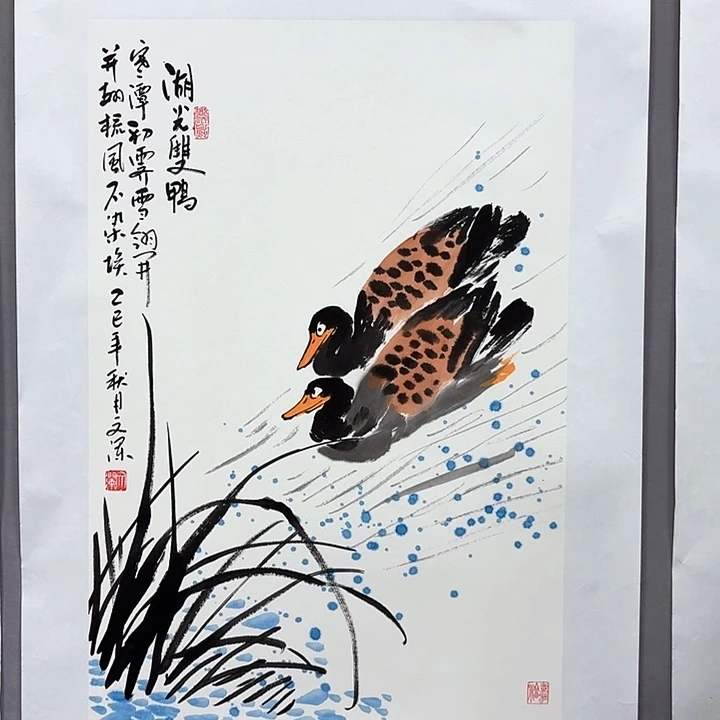 湖光雙鴨
寒潭初霽雪翎開
并翅梳風不染埃
乙巳年秋月文深